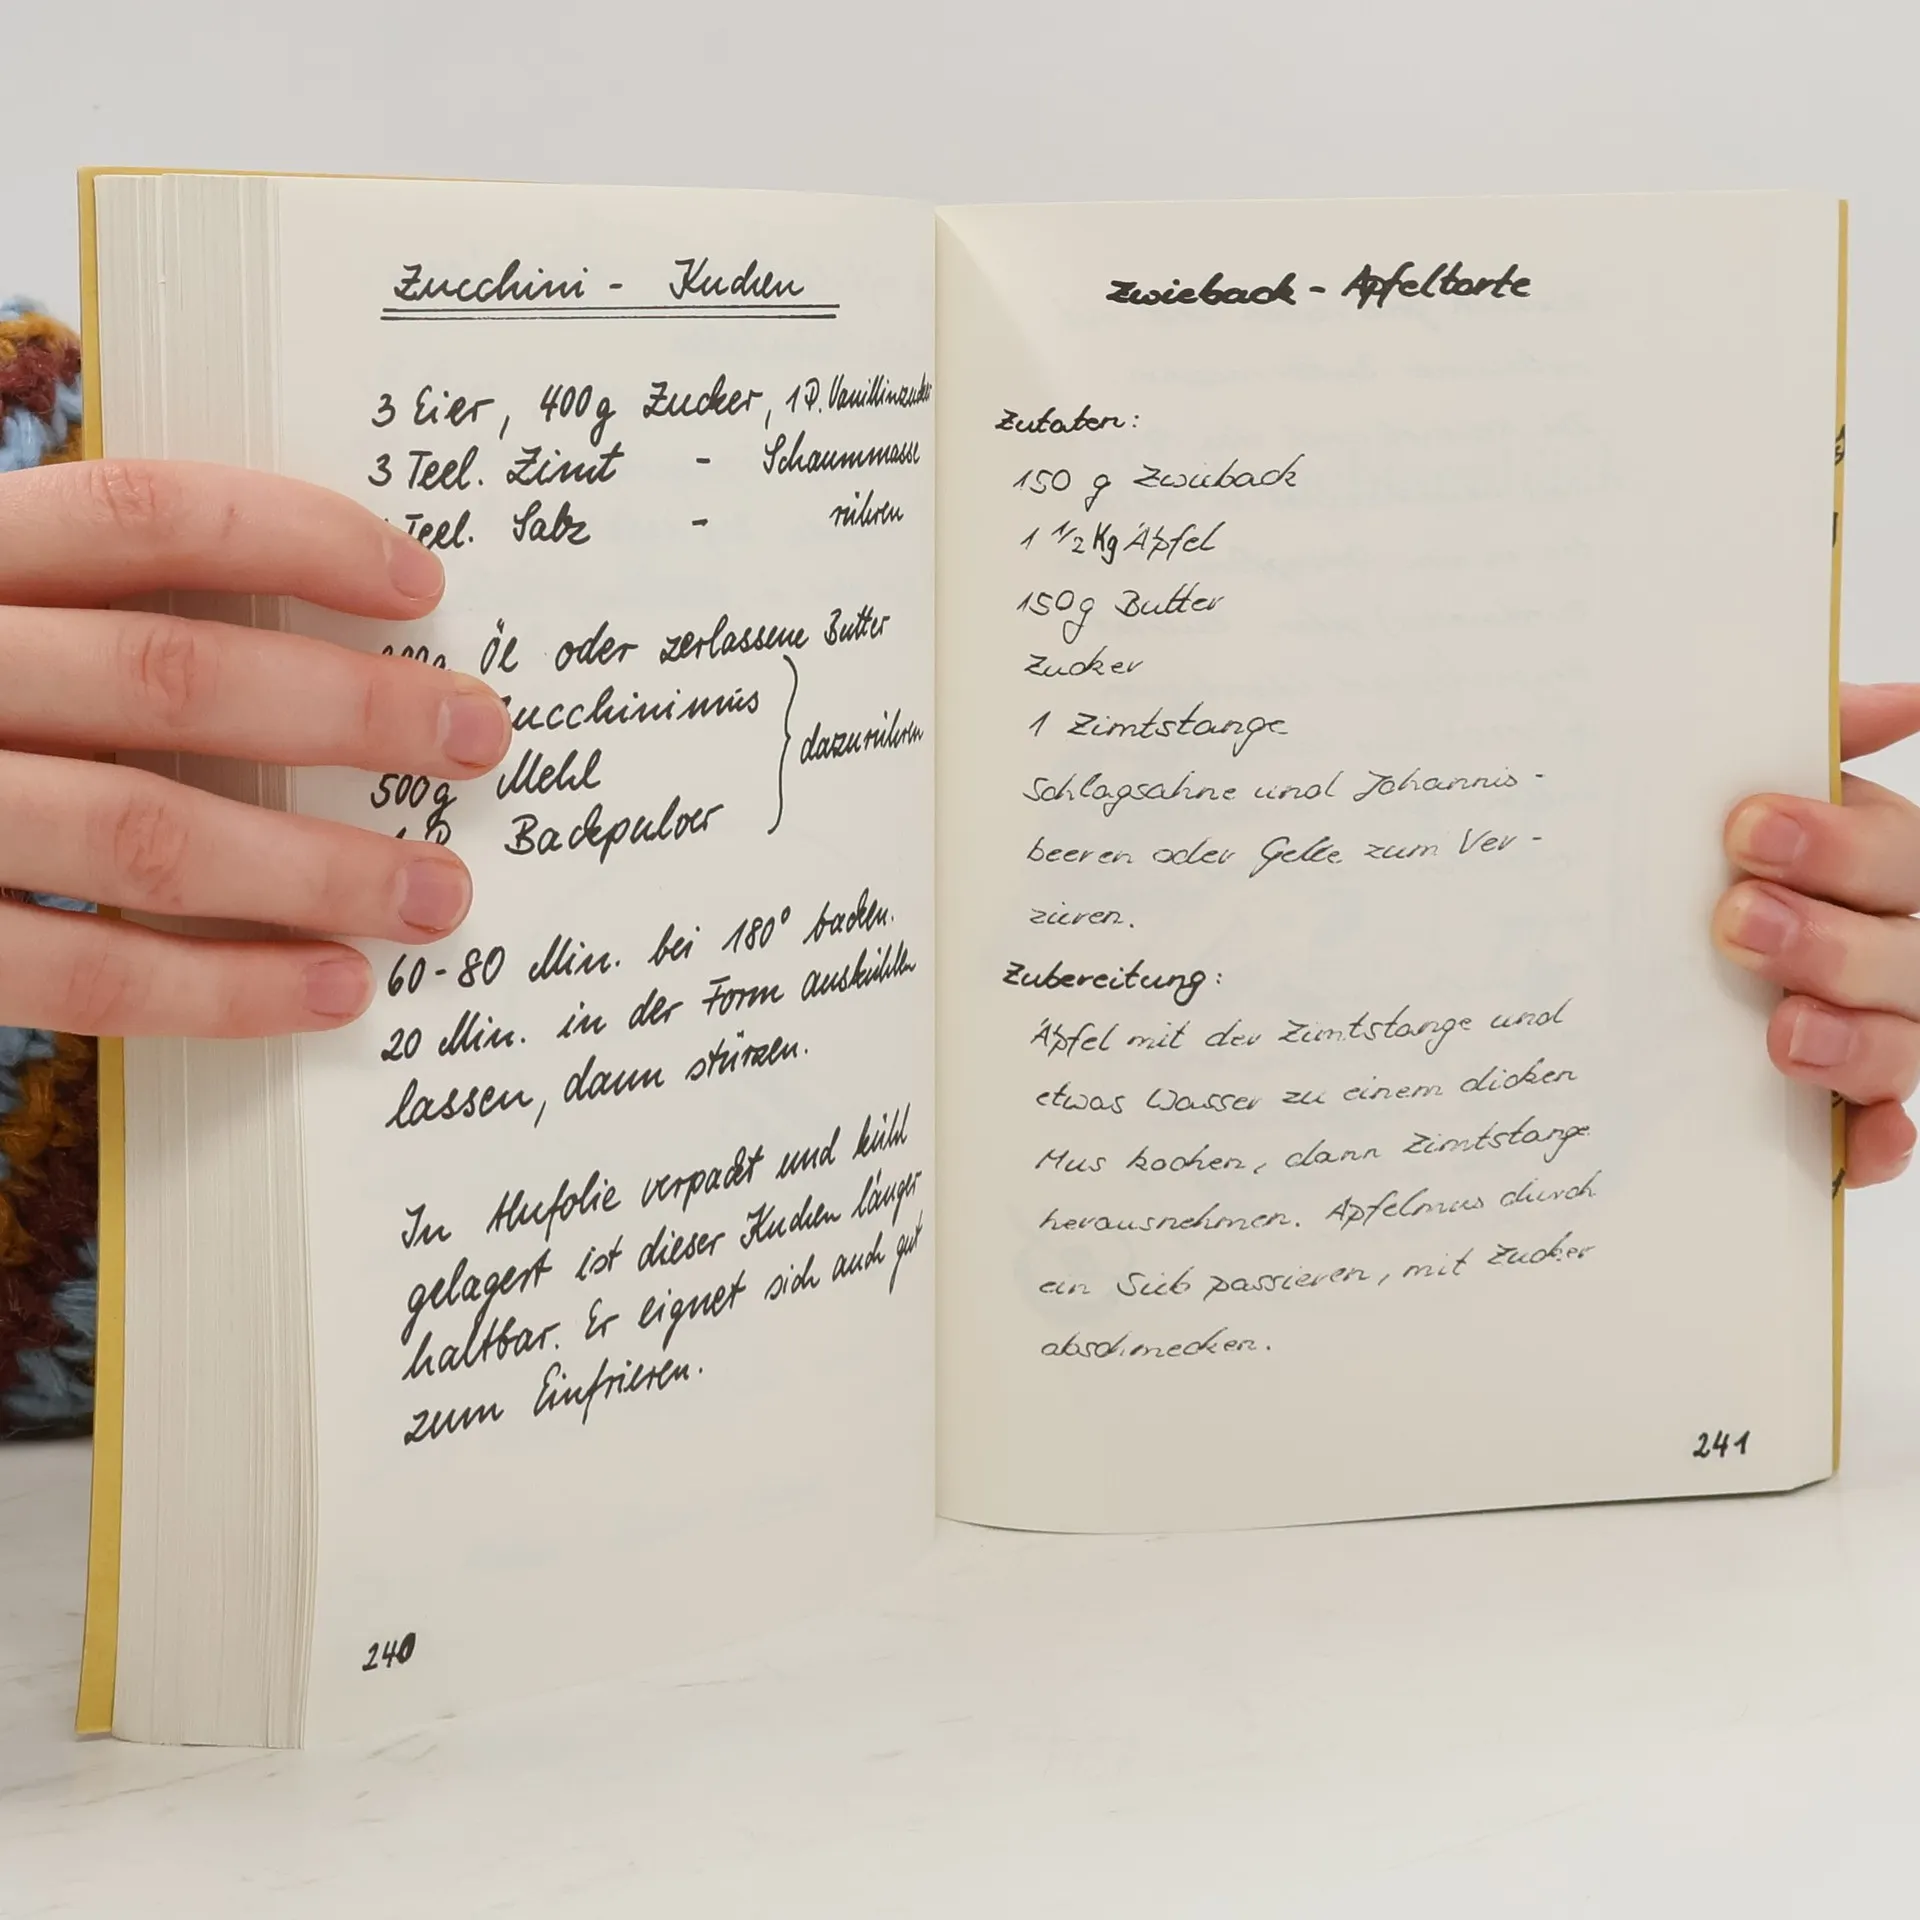 Zucchini - Kuchen
3 Eier, 400g Zucker, 1 P. Vanillinzucker
3 Teel. Zimt - Schaummasse
Teel. Salz - rühren
Öl oder zerlassene Butter
ucchinimus
dazurühren
500g Mehl
Backpulver
60-80 Min. bei 180° backen.
20 Min. in der Form auskühlen
lassen, dann stürzen.
In Alufolie verpackt und kühl
gelagert ist dieser Kuchen länger
haltbar. Er eignet sich auch gut
zum Einfrieren.
240
Zwieback - Apfeltorte
Zutaten:
150 g Zwieback
1 1/2 Kg Äpfel
150g Butter
Zucker
1 Zimtstange
Schlagsahne und Johannis-
beeren oder Gelee zum Ver-
zieren.
Zubereitung:
Äpfel mit der Zimtstange und
etwas Wasser zu einem dicken
Mus kochen, dann Zimtstange
herausnehmen. Apfelmus durch
ein Sieb passieren, mit Zucker
abschmecken.
241